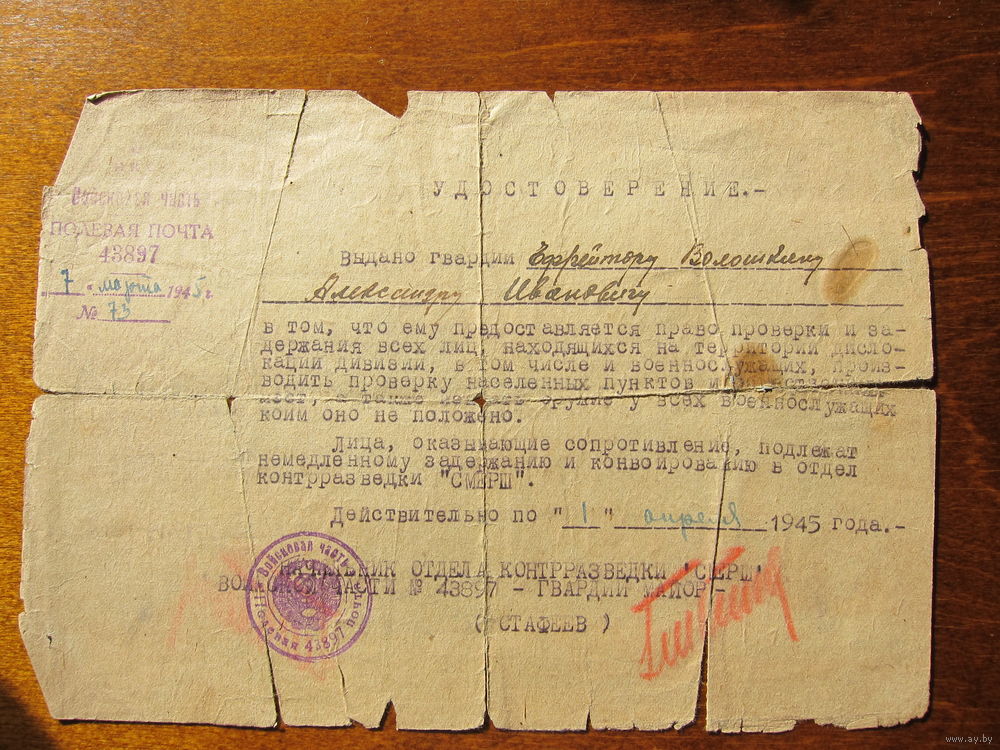 Войсковая часть
ПОЛЕВАЯ ПОЧТА
43897
"7" марта 1945 г.
№ 73
УДОСТОВЕРЕНИЕ.-
Выдано гвардии Ефрейтору Волошкину
Александру Ивановичу
в том, что ему предоставляется право проверки и за-
держания всех лиц, находящихся на территории дисло-
кации дивизии, в том числе и военнослужащих, произ-
водить проверку населенных пунктов и
мест, а также оружие у всех военнослужащих
коим оно не положено.
Лица, оказывающие сопротивление, подлежат
немедленному задержанию и конвоированию в отдел
контрразведки "СМЕРШ".
Действительно по "1" апреля 1945 года.-
НАЧАЛЬНИК ОТДЕЛА КОНТРРАЗВЕДКИ "СМЕРШ"
ВОЙСКОВОЙ ЧАСТИ № 43897 - ГВАРДИИ МАЙОР -
( СТАФЕЕВ )
Войсковая часть Полевая почта 43897
www.ay.by